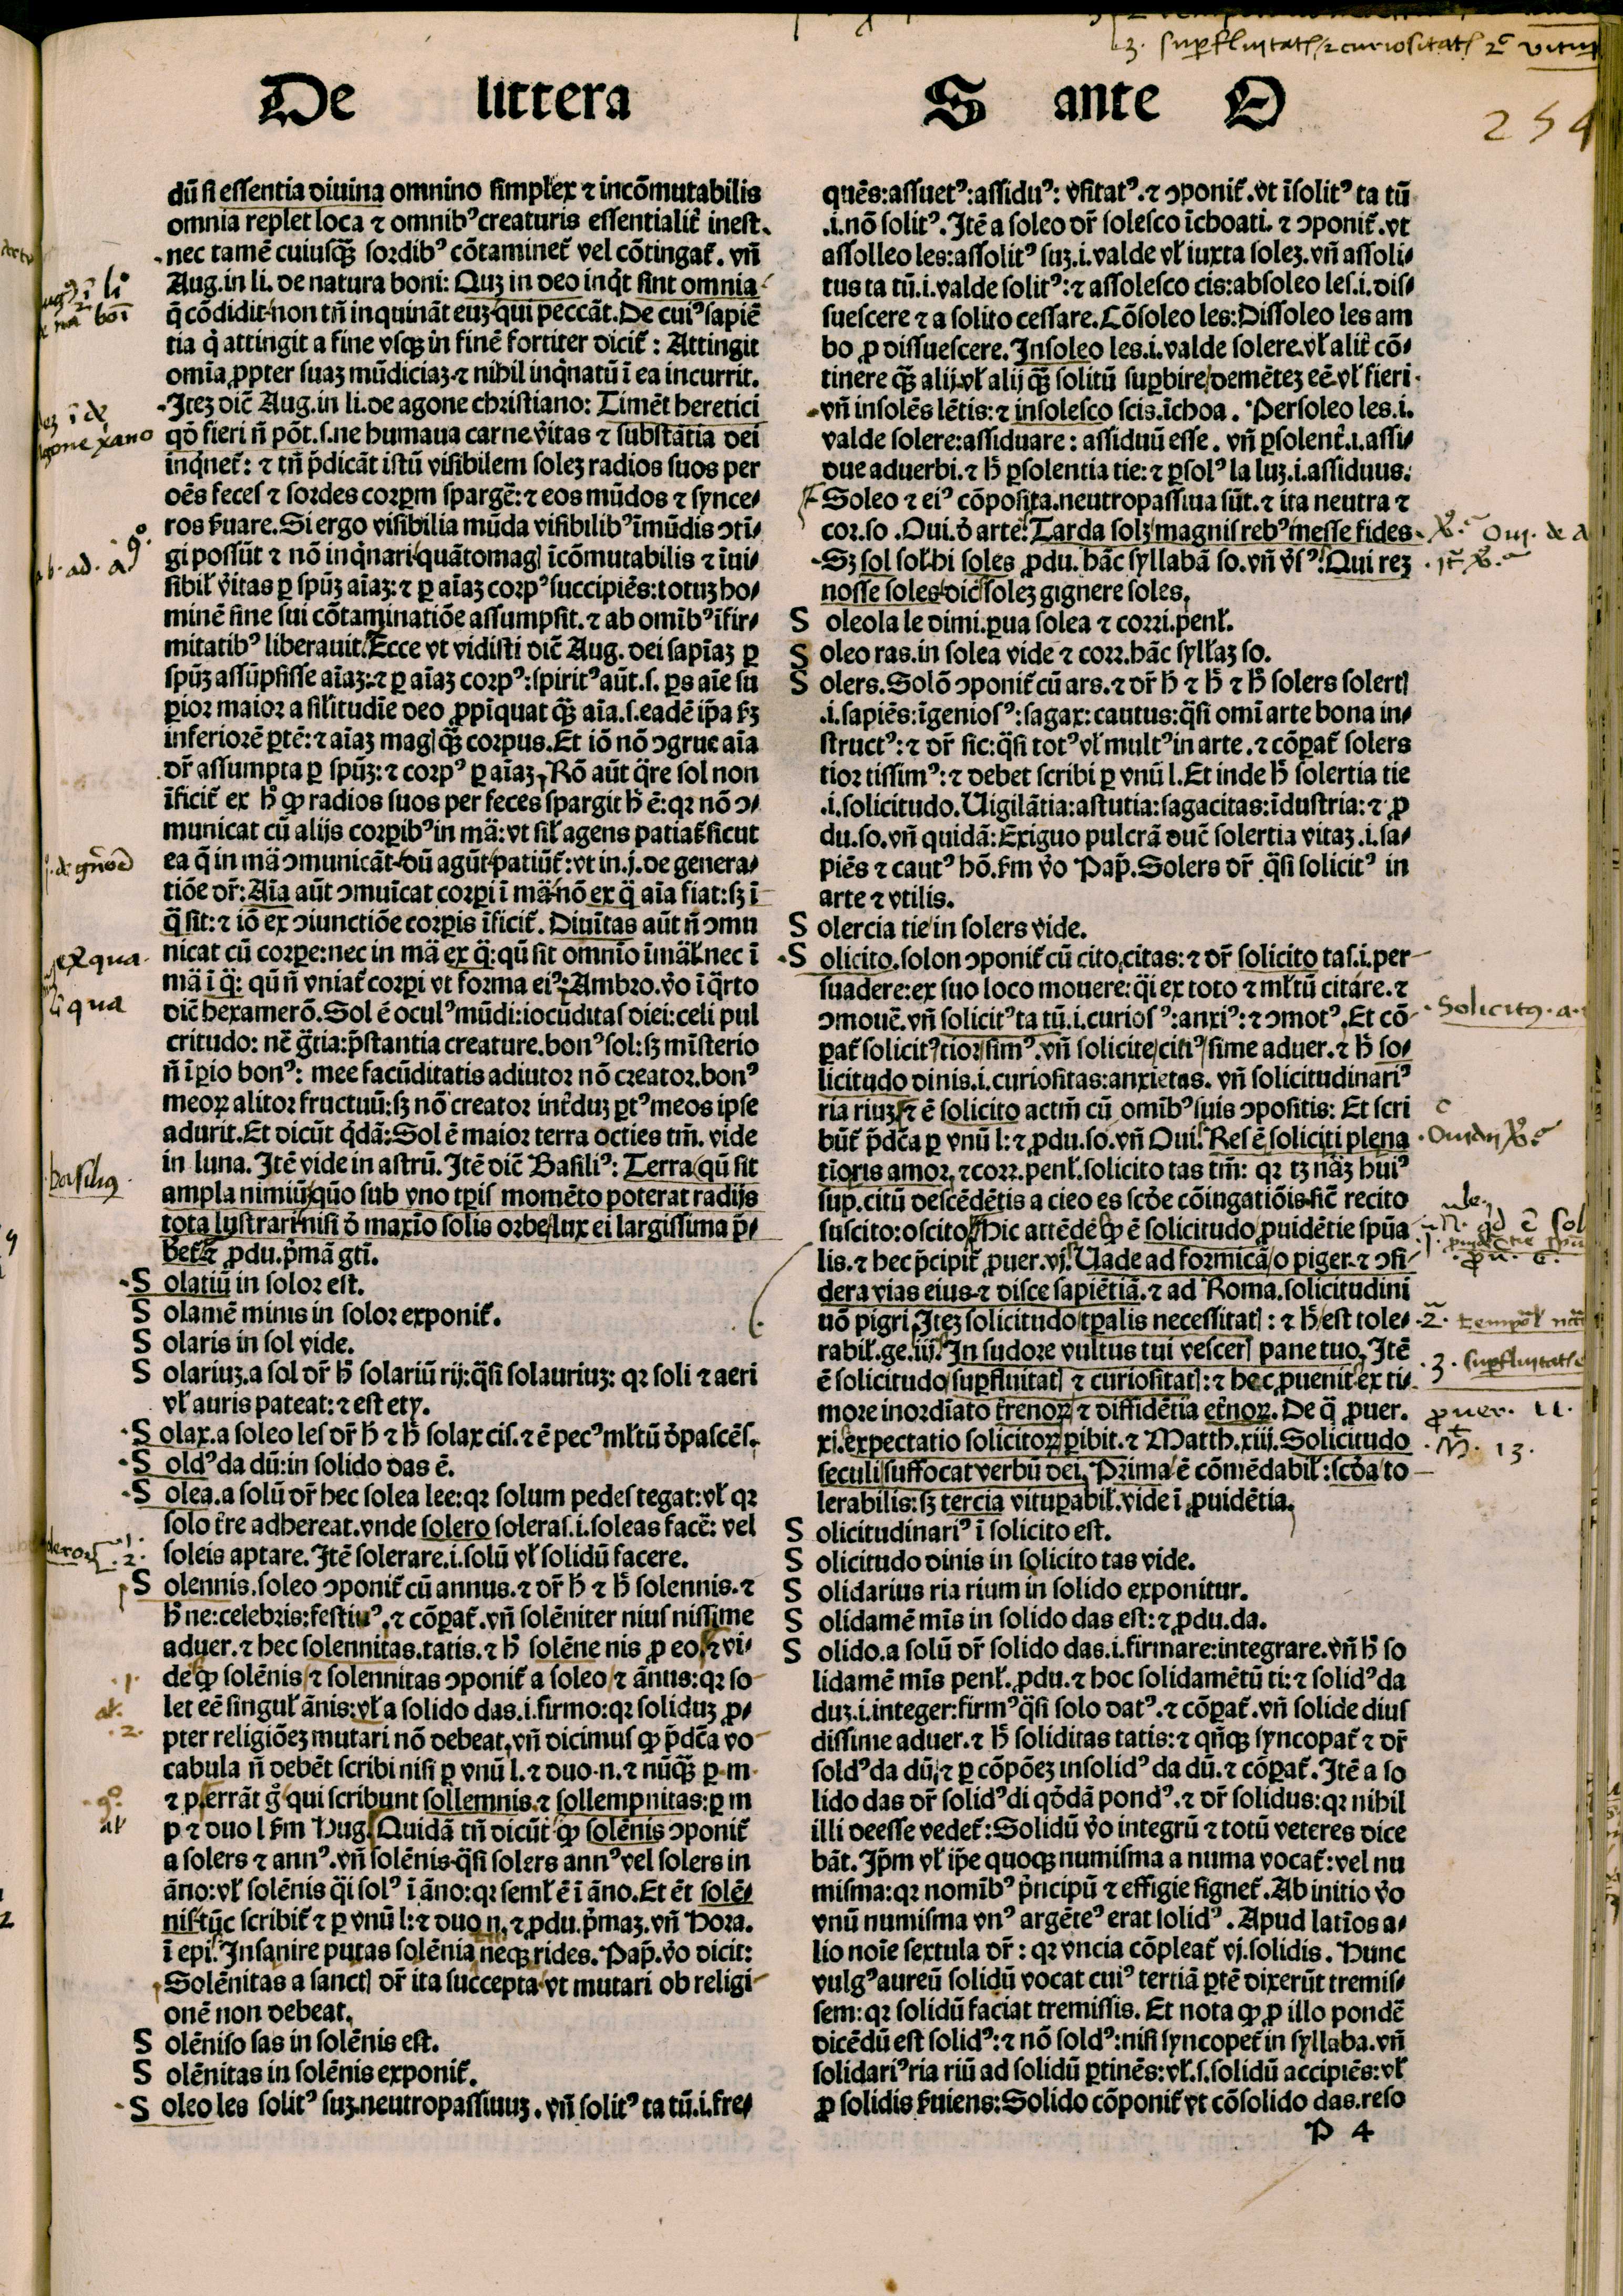 De littera
S ante O
254
dũ si essentia diuina omnino simplex ⁊ incõmutabilis
omnia replet loca ⁊ omnibꝰ creaturis essentialit̃ inest.
nec tamẽ cuiusqꝫ̃ sordibꝰ cõtaminet̃ vel cõtingat̃. vñ
Aug. in li. de natura boni: Quꝫ in deo inqͥt sint omnia
q̃ cõdidit non tñ inquinãt euꝫ qui peccãt. De cuiꝰ sapiẽ
tia qͥ attingit a fine vsqꝫ in finẽ fortiter dicit̃: Attingit
omĩa ꝓpter suaꝫ mũdiciaꝫ ⁊ nihil inqͥnatũ ĩ ea incurrit.
Iteꝫ dic̃ Aug. in li. de agone christiano: Timẽt heretici
qđ fieri ñ põt. s. ne humaua carne v̓itas ⁊ substãtia dei
inqͥnet̃: ⁊ tñ p̃dicãt istũ visibilem soleꝫ radios suos per
oẽs feces ⁊ sordes corꝑm spargẽ: ⁊ eos mũdos ⁊ synce/
ros ẜuare. Si ergo visibilia mũda visibilibꝰ ĩmũdis ɔtĩ/
gi possũt ⁊ nõ inqͥnari quãtomagꝭ ĩcõmutabilis ⁊ ĩui/
sibil̃ v̓itas ꝑ spũꝫ aĩaꝫ: ⁊ ꝑ aĩaꝫ corpꝰ succipiẽs: totuꝫ ho/
minẽ sine sui cõtaminatiõe assumpsit. ⁊ ab omĩbꝰ ĩfir/
mitatibꝰ liberauit. Ecce vt vidisti dic̃ Aug. dei sapĩaꝫ ꝑ
spũꝫ assũpsisse aĩaꝫ: ⁊ ꝑ aĩaꝫ corpꝰ: spiritꝰ aũt. s. ꝑs aĩe su
ꝑior maior a sil̃itudĩe deo ꝓpĩquat qꝫ̃ aĩa. s. eadẽ ip̃a ẜꝫ
inferiorẽ ꝑtẽ: ⁊ aĩaꝫ magꝭ qꝫ̃ corpus. Et iõ nõ ɔgrue aĩa
dr̃ assumpta ꝑ spũꝫ: ⁊ corpꝰ ꝑ aĩaꝫ. Rõ aũt q̃re sol non
ĩficit̃ ex h̓ ꝙ radios suos per feces spargit h̓ ẽ: qꝛ nõ ɔ/
municat cũ alijs corꝑibꝰ in mã: vt sil̃ agens patiat̃ sicut
ea q̃ in mã ɔmunicãt dũ agũt patiũt̃: vt in. j. de genera/
tiõe dr̃: Aĩa aũt ɔmuĩcat corꝑi ĩ mã nõ ex q̃ aĩa fiat: sꝫ ĩ
q̃ sit: ⁊ iõ ex ɔiunctiõe corꝑis ĩficit̃. Diuĩtas aũt ñ ɔmu
nicat cũ corꝑe: nec in mã ex q̃: qũ sit omnĩo ĩmãl̃ nec ĩ
mã ĩ q̃: qũ ñ vniat̃ corꝑi vt forma eiꝰ. Ambro. v̓o ĩ q̃rto
dic̃ hexamerõ. Sol ẽ oculꝰ mũdi: iocũditas diei: celi pul
critudo: nẽ gr̃tia: p̃stantia creature. bonꝰ sol: sꝫ mĩsterio
ñ ĩꝑio bonꝰ: mee facũditatis adiutor nõ creator. bonꝰ
meoꝝ alitor fructuũ: sꝫ nõ creator int̃duꝫ ꝑtꝰ meos ipse
adurit. Et dicũt qͥdã: Sol ẽ maior terra octies tm̃. vide
in luna. Itẽ vide in astrũ. Itẽ dic̃ Basiliꝰ: Terra qũ sit
ampla nimiũ qũo sub vno tꝑis momẽto poterat radijs
tota lustrari nisi d̓ maxĩo solis orbe lux ei largissima p̃/
bet̃. ⁊ ꝓdu. p̃mã gtĩ.
S olatiũ in solor est.
S olamẽ minis in solor exponit̃.
S olaris in sol vide.
S olariuꝫ. a sol dr̃ h̓ solariũ rij: q̃si solauriuꝫ: qꝛ soli ⁊ aeri
vl̃ auris pateat: ⁊ est ety.
S olax. a soleo les dr̃ h̓ ⁊ h̓ solax cis. ⁊ ẽ pecꝰ ml̃tũ d̓pascẽs.
S oldꝰ da dũ: in solido das ẽ.
S olea. a solũ dr̃ hec solea lee: qꝛ solum pedes tegat: vl̃ qꝛ
solo t̃re adhereat. vnde solero soleras. i. soleas facẽ: vel
soleis aptare. Itẽ solerare. i. solũ vl̃ solidũ facere.
S olennis. soleo ɔponit̃ cũ annus. ⁊ dr̃ h̓ ⁊ h̓ solennis. ⁊
h̓ ne: celebris: festiuꝰ. ⁊ cõꝑat̃. vñ solẽniter nius nissime
aduer. ⁊ hec solennitas. tatis. ⁊ h̓ solẽne nis ꝓ eo. ⁊ vi/
de ꝙ solẽnis ⁊ solennitas ɔponit̃ a soleo ⁊ ãnus: qꝛ so
let eẽ singul̃ ãnis: vl̃ a solido das. i. firmo: qꝛ soliduꝫ ꝓ/
pter religiõeꝫ mutari nõ debeat. vñ dicimus ꝙ p̃dc̃a vo
cabula ñ debẽt scribi nisi ꝑ vnũ l. ⁊ duo. n. ⁊ nũqꝫ̃ ꝑ m
⁊ p. errãt g̃ qui scribunt sollemnis. ⁊ sollempnitas: ꝑ m
p ⁊ duo l ẜm Hug. Quidã tñ dicũt ꝙ solẽnis ɔponit̃
a solers ⁊ annꝰ. vñ solẽnis q̃si solers annꝰ vel solers in
ãno: vl̃ solẽnis q̃i solꝰ ĩ ãno: qꝛ semł ẽ ĩ ãno. Et ẽt solẽ/
nis tũc scribit̃ ⁊ ꝑ vnũ l: ⁊ duo n. ⁊ ꝓdu. p̃maꝫ. vñ Hora.
ĩ epi. Insanire putas solẽnia neqꝫ rides. Pap̃. v̓o dicit:
Solẽnitas a sanctꝭ dr̃ ita succepta vt mutari ob religi
onẽ non debeat.
S olẽniso sas in solẽnis est.
S olẽnitas in solẽnis exponit̃.
S oleo les solitꝰ suꝫ. neutropassiuuꝫ. vñ solitꝰ ta tũ. i. fre/
quẽs: assuetꝰ: assiduꝰ: vsitatꝰ. ⁊ ɔponit̃. vt ĩsolitꝰ ta tũ
.i. nõ solitꝰ. Itẽ a soleo dr̃ solesco ĩchoati. ⁊ ɔponit̃. vt
assolleo les: assolitꝰ suꝫ. i. valde vl̃ iuxta soleꝫ. vñ assoli/
tus ta tũ. i. valde solitꝰ: ⁊ assolesco cis: absoleo les. i. dis/
suescere ⁊ a solito cessare. Cõsoleo les: Dissoleo les am
bo ꝓ dissuescere. Insoleo les. i. valde solere. vl̃ alit̃ cõ/
tinere qꝫ̃ alij. vl̃ alij qꝫ̃ solitũ suꝑbire demẽteꝫ eẽ vl̃ fieri.
vñ insolẽs lẽtis: ⁊ insolesco scis. ĩchoa. Persoleo les. i.
valde solere: assiduare: assiduũ esse. vñ ꝑsolent̃. i. assi/
due aduerbi. ⁊ h̓ ꝑsolentia tie: ⁊ ꝑsolꝰ la luꝫ. i. assiduus.
Soleo ⁊ eiꝰ cõposita. neutropassiua sũt. ⁊ ita neutra ⁊
cor. so. Oui. d̓ arte. Tarda solꝫ magnis rebꝰ inesse fides
Sꝫ sol sol̃ hi soles ꝓdu. hãc syllabã so. vñ v̓sꝰ. Qui reꝫ
nosse soles dic̃ soleꝫ gignere soles.
S oleola le dimi. ꝑua solea ⁊ corri. penl̃.
S oleo ras. in solea vide ⁊ corr. hãc syll̃aꝫ so.
S olers. Solõ ɔponit̃ cũ ars. ⁊ dr̃ h̓ ⁊ h̓ ⁊ h̓ solers solertꝭ
.i. sapiẽs: ĩgeniosꝰ: sagax: cautus: q̃si omĩ arte bona in/
structꝰ: ⁊ dr̃ sic: q̃si totꝰ vl̃ multꝰ in arte. ⁊ cõꝑat̃ solers
tior tissimꝰ: ⁊ debet scribi ꝑ vnũ l. Et inde h̓ solertia tie
.i. solicitudo. Uigilãtia: astutia: sagacitas: ĩdustria: ⁊ ꝓ
du. so. vñ quidã: Exiguo pulcrã ducẽ solertia vitaꝫ. i. sa/
piẽs ⁊ cautꝰ hõ. ẜm v̓o Pap̃. Solers dr̃ q̃si solicitꝰ in
arte ⁊ vtilis.
S olercia tie in solers vide.
S olicito. solon ɔponit̃ cũ cito, citas: ⁊ dr̃ solicito tas. i. per
suadere: ex suo loco mouere: q̃i ex toto ⁊ ml̃tũ citare. ⁊
ɔmouẽ. vñ solicitꝰ ta tũ. i. curiosꝰ: anxiꝰ: ⁊ ɔmotꝰ. Et cõ
ꝑat̃ solicitꝰ tior simꝰ. vñ solicite citiꝰ sime aduer. ⁊ h̓ so/
licitudo dinis. i. curiositas: anxietas. vñ solicitudinariꝰ
ria riuꝫ. ⁊ ẽ solicito actm̃ cũ omĩbꝰ suis ɔpositis: Et scri
bũt̃ p̃dc̃a ꝑ vnũ l: ⁊ ꝓdu. so. vñ Oui. Res ẽ soliciti plena
tĩoris amor. ⁊ corr. penl̃. solicito tas tm̃: qꝛ tꝫ nãꝫ huiꝰ
sup. citũ descẽdẽtis a cieo es scd̓e cõiugatiõis. sic̃ recito
suscito: oscito. Hic attẽde ꝙ ẽ solicitudo ꝓuidẽtie spũa
lis. ⁊ hec p̃cipit̃ ꝓuer. vj. Uade ad formicã o piger. ⁊ ɔsi/
dera vias eius ⁊ disce sapiẽtiã. ⁊ ad Roma. solicitudini
nõ pigri. Iteꝫ solicitudo tꝑalis necessitatꝭ: ⁊ h̓ est tole/
rabil̃. ge. iij. In sudore vultus tui vescerꝭ pane tuo. Itẽ
ẽ solicitudo suꝑfluitatꝭ ⁊ curiositatꝭ: ⁊ hec ꝓuenit ex ti/
more inordĩato t̃renoꝝ ⁊ diffidẽtia et̃noꝝ. De q̃ ꝓuer.
xj. expectatio solicitoꝝ ꝑibit. ⁊ Matth. xiij. Solicitudo
seculi suffocat verbũ dei. Prima ẽ cõmẽdabil̃: scd̓a to
lerabilis: sꝫ tercia vituꝑabil̃. vide ĩ ꝓuidẽtia.
S olicitudinariꝰ ĩ solicito est.
S olicitudo dinis in solicito tas vide.
S olidarius ria rium in solido exponitur.
S olidamẽ mĩs in solido das est: ⁊ ꝓdu. da.
S olido. a solũ dr̃ solido das. i. firmare: integrare. vñ h̓ so
lidamẽ mĩs penl̃. ꝓdu. ⁊ hoc solidamẽtũ ti: ⁊ solidꝰ da
duꝫ. i. integer: firmꝰ q̃si solo datꝰ. ⁊ cõꝑat̃. vñ solide dius
dissime aduer. ⁊ h̓ soliditas tatis: ⁊ qñqꝫ syncopat̃ ⁊ dr̃
soldꝰ da dũ. ⁊ ꝑ cõpõeꝫ insolidꝰ da dũ. ⁊ cõꝑat̃. Itẽ a so
lido das dr̃ solidꝰ di qd̓dã pondꝰ. ⁊ dr̃ solidus: qꝛ nihil
illi deesse vedet̃: Solidũ v̓o integrũ ⁊ totũ veteres dice
bãt. Ip̃m vl̃ ip̃e quoqꝫ numisma a numa vocat̃: vel nu
misma: qꝛ nomĩbꝰ p̃ncipũ ⁊ effigie signet̃. Ab initio v̓o
vnũ numisma vnꝰ argẽteꝰ erat solidꝰ. Apud latĩos a/
lio noĩe sextula dr̃: qꝛ vncia cõpleat̃ vj. solidis. Hunc
vulgꝰ aureũ solidũ vocat cuiꝰ tertiã ꝑtẽ dixerũt tremis/
sem: qꝛ solidũ faciat tremissis. Et nota ꝙ ꝓ illo pondẽ
dicẽdũ est solidꝰ: ⁊ nõ soldꝰ: nisi syncopet̃ in syllaba. vñ
solidariꝰ ria riũ ad solidũ ꝑtinẽs: vl̃. s. solidũ accipiẽs: vl̃
ꝓ solidis ẜuiens: Solido cõponit̃ vt cõsolido das. reso
P 4
ex qua
qua
basiliꝰ
Solicitꝰ
ꝓuer. 11.
M. 13.